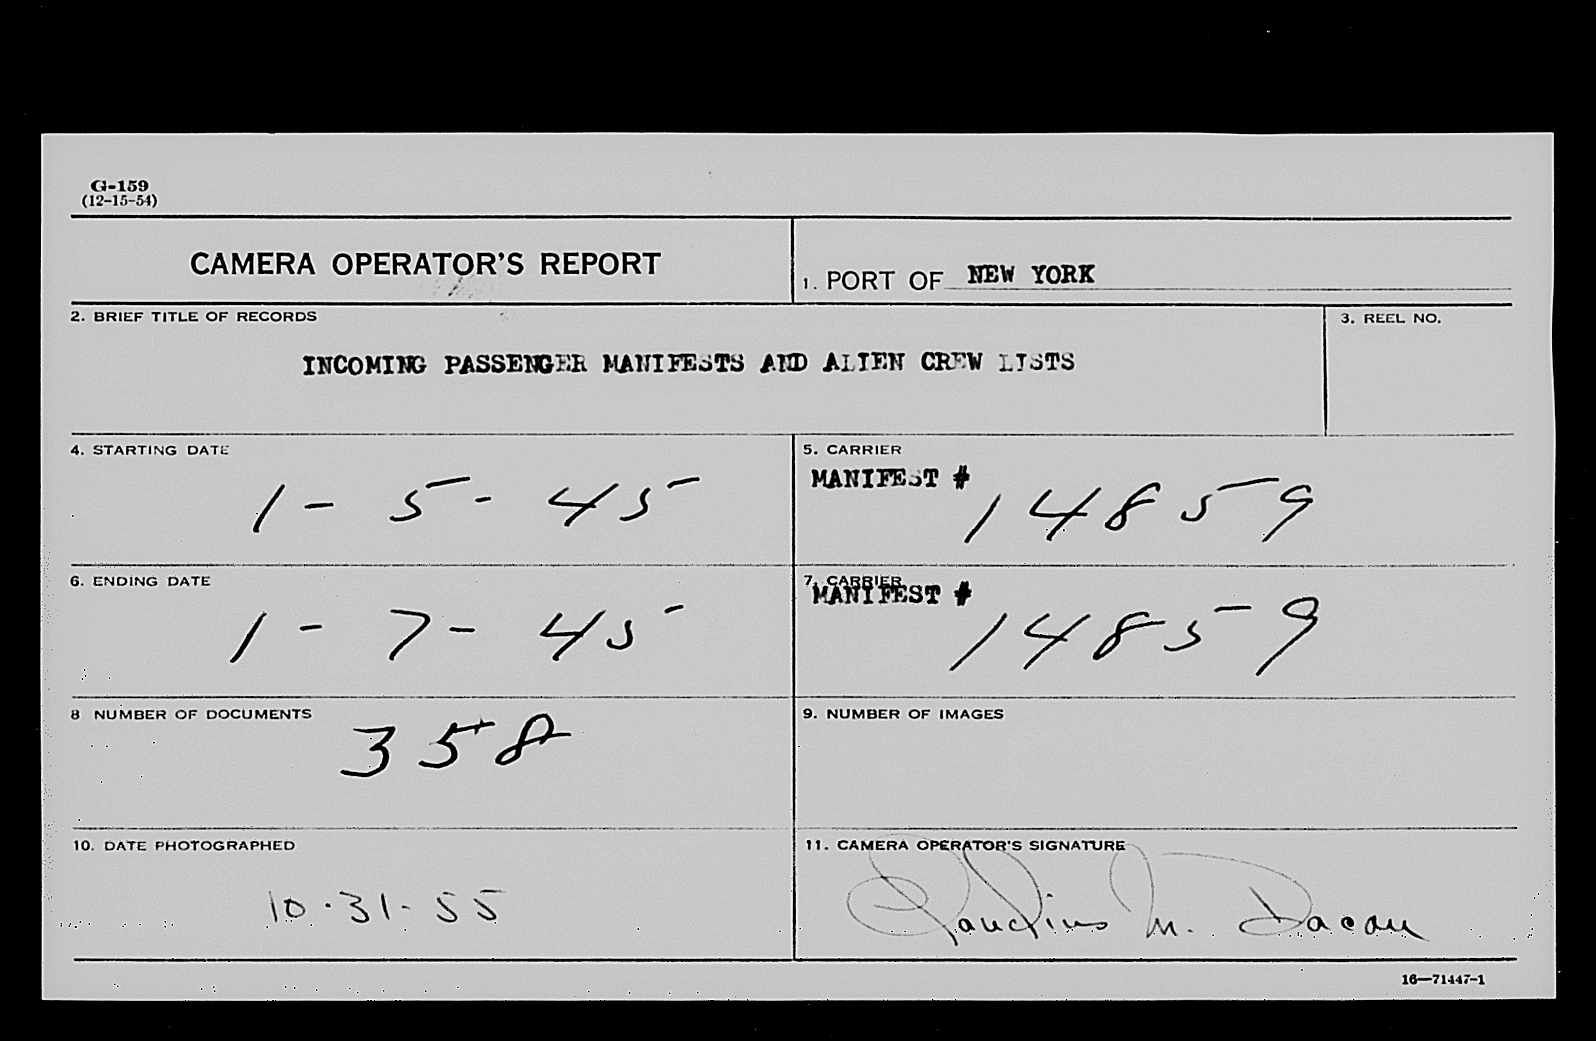 G-159
(12-15-54)
CAMERA OPERATOR'S REPORT
1. PORT OF NEW YORK
2. BRIEF TITLE OF RECORDS
3. REEL NO.
INCOMING PASSENGER MANIFESTS AND ALIEN CREW LISTS
4. STARTING DATE
1-5-45
5. CARRIER
MANIFEST # 14859
6. ENDING DATE
1-7-45
7. CARRIER
MANIFEST # 14859
8 NUMBER OF DOCUMENTS
358
9. NUMBER OF IMAGES
10. DATE PHOTOGRAPHED
10.31-55
11. CAMERA OPERATOR'S SIGNATURE
Claudius M.
16—71447-1